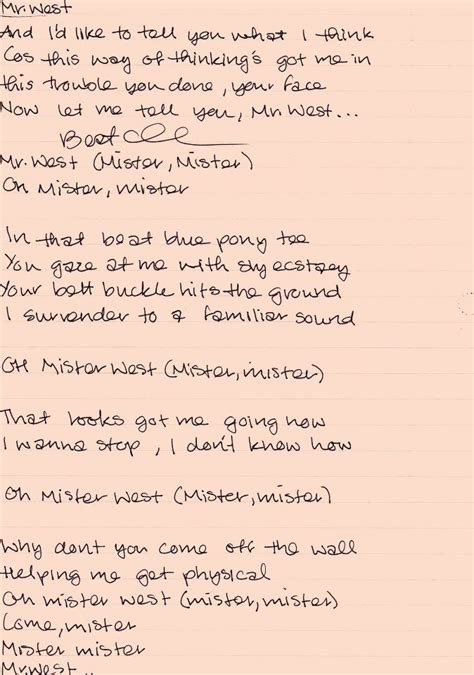 Mr. West
And I'd like to tell you what I think
Cos this way of thinking's got me in
this trouble you done, your face
Now let me tell you, Mr. West...
Beat
Mr. West (Mister, Mister)
Oh Mister, mister
In that beat blue pony tee
You gaze at me with sly ecstasy
Your belt buckle hits the ground
I surrender to a familiar sound
OH Mister West (Mister, mister)
That looks got me going now
I wanna stop, I don't know how
Oh Mister West (Mister, mister)
Why dont you come off the wall
Helping me get physical
Oh mister west (mister, mister)
Come, mister
Mister mister
Mr. West...